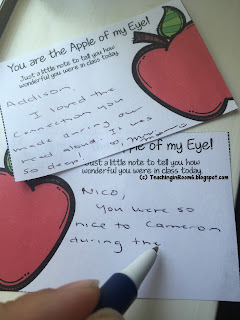 You are the Apple of my Eye!
Just a little note to tell you how
wonderful you were in class today.
Addison,
I loved the
connection you
made during our
read aloud. It was
so deep
(c) TeachinginRoom6.blogspot.com
of my Eye!
Just a little note to tell you how
wonderful you were in class today.
Nico,
You were so
nice to Cameron
during the